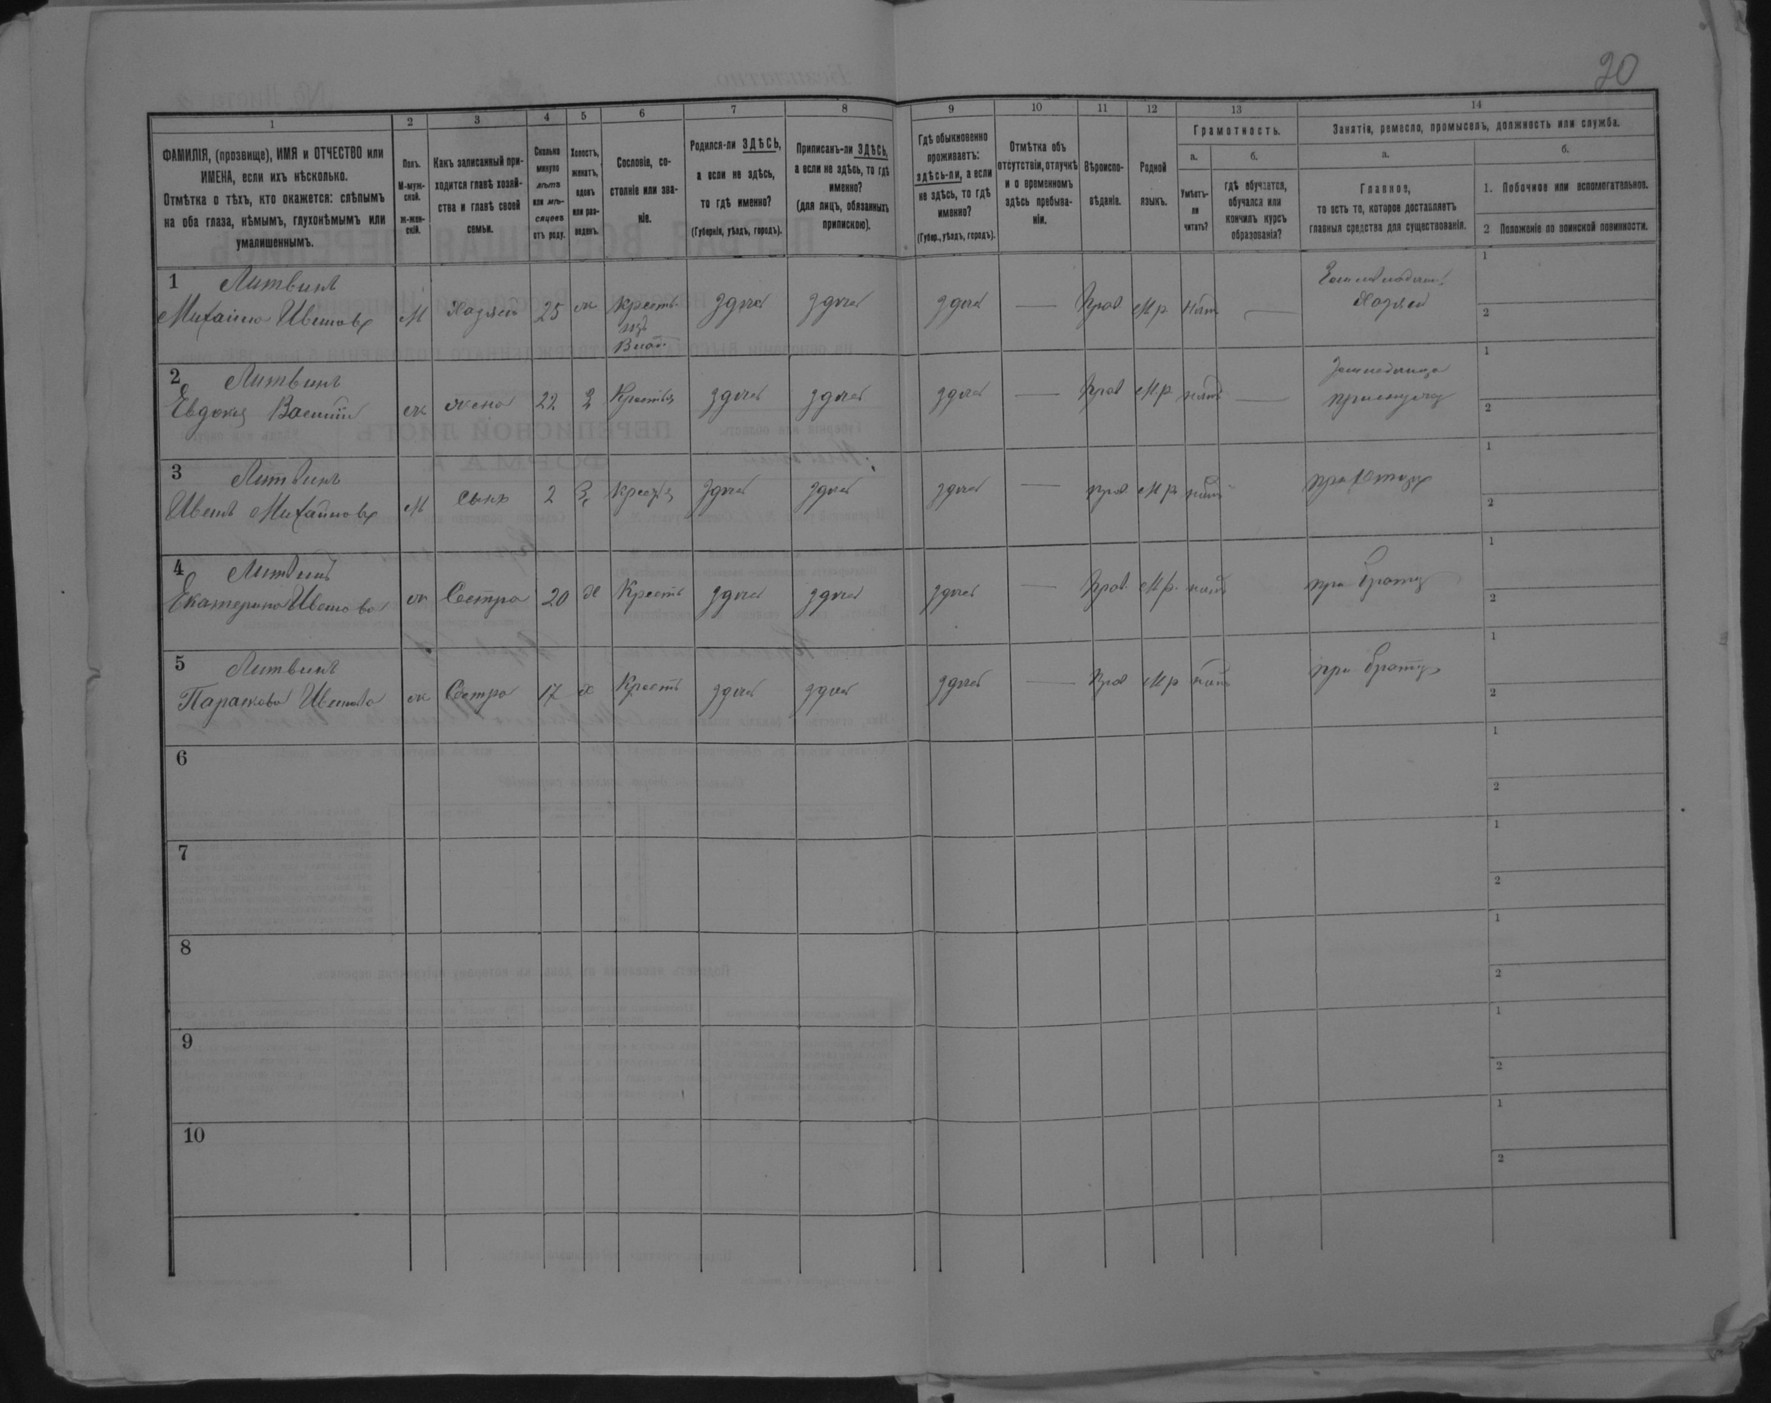 20
1
2
3
4
5
6
7
8
9
10
11
12
13
14
ФАМИЛІЯ, (прозвище), ИМЯ и ОТЧЕСТВО или
ИМЕНА, если ихъ нѣсколько.
Отмѣтка о тѣхъ, кто окажется: слѣпымъ
на оба глаза, нѣмымъ, глухонѣмымъ или
умалишеннымъ.
Полъ.
М-муж-
ской.
Ж-жен-
скій.
Какъ записанный при-
ходится главѣ хозяй-
ства и главѣ своей
семьи.
Сколько
минуло
лѣтъ
или мѣ-
сяцевъ
отъ роду.
Холостъ,
женатъ,
вдовъ
или раз-
веденъ.
Сословіе, со-
стояніе или зва-
ніе.
Родился-ли ЗДѢСЬ,
а если не здѣсь,
то гдѣ именно?
(Губернія, уѣздъ, городъ).
Приписанъ-ли ЗДѢСЬ,
а если не здѣсь, то гдѣ
именно?
(для лицъ, обязанныхъ
припискою).
Гдѣ обыкновенно
проживаетъ:
здѣсь-ли, а если
не здѣсь, то гдѣ
именно?
(Губер., уѣздъ, городъ).
Отмѣтка объ
отсутствіи, отлучкѣ
и о временномъ
здѣсь пребыва-
ніи.
Вѣроиспо-
вѣданіе.
Родной
языкъ.
Грамотность.
а.
Умѣетъ-
ли
читать?
б.
гдѣ обучается,
обучался или
кончилъ курсъ
образованія?
Занятія, ремесло, промыселъ, должность или служба.
а.
Главное,
то есть то, которое доставляетъ
главныя средства для существованія.
б.
1. Побочное или вспомогательное.
2 Положеніе по воинской повинности.
1 Литвинъ
Михайло Ивановъ М Хозяинъ 25 ж Крестъ
изъ
здѣсь здѣсь здѣсь — Прав М р нѣтъ —
Хозяин
1
2
2 Литвинъ
Евдокія Васил ж жена 22 З Крестья здѣсь здѣсь здѣсь — Прав М р нѣтъ —
при мужѣ
1
2
3 Литвинъ
Иванъ Михайловъ М сынъ 2 Крестья здѣсь здѣсь здѣсь — прав М р нѣтъ при отцѣ
1
2
4 Литвинъ
Екатерина Иванова ж Сестра 20 Крестъ здѣсь здѣсь здѣсь — Прав М р. нѣтъ при братѣ
1
2
5 Литвинъ
Параскова Иванова ж Сестра 17 Крестъ здѣсь здѣсь здѣсь — Прав М р нѣтъ при братѣ
1
2
6
1
2
7
1
2
8
1
2
9
1
2
10
1
2